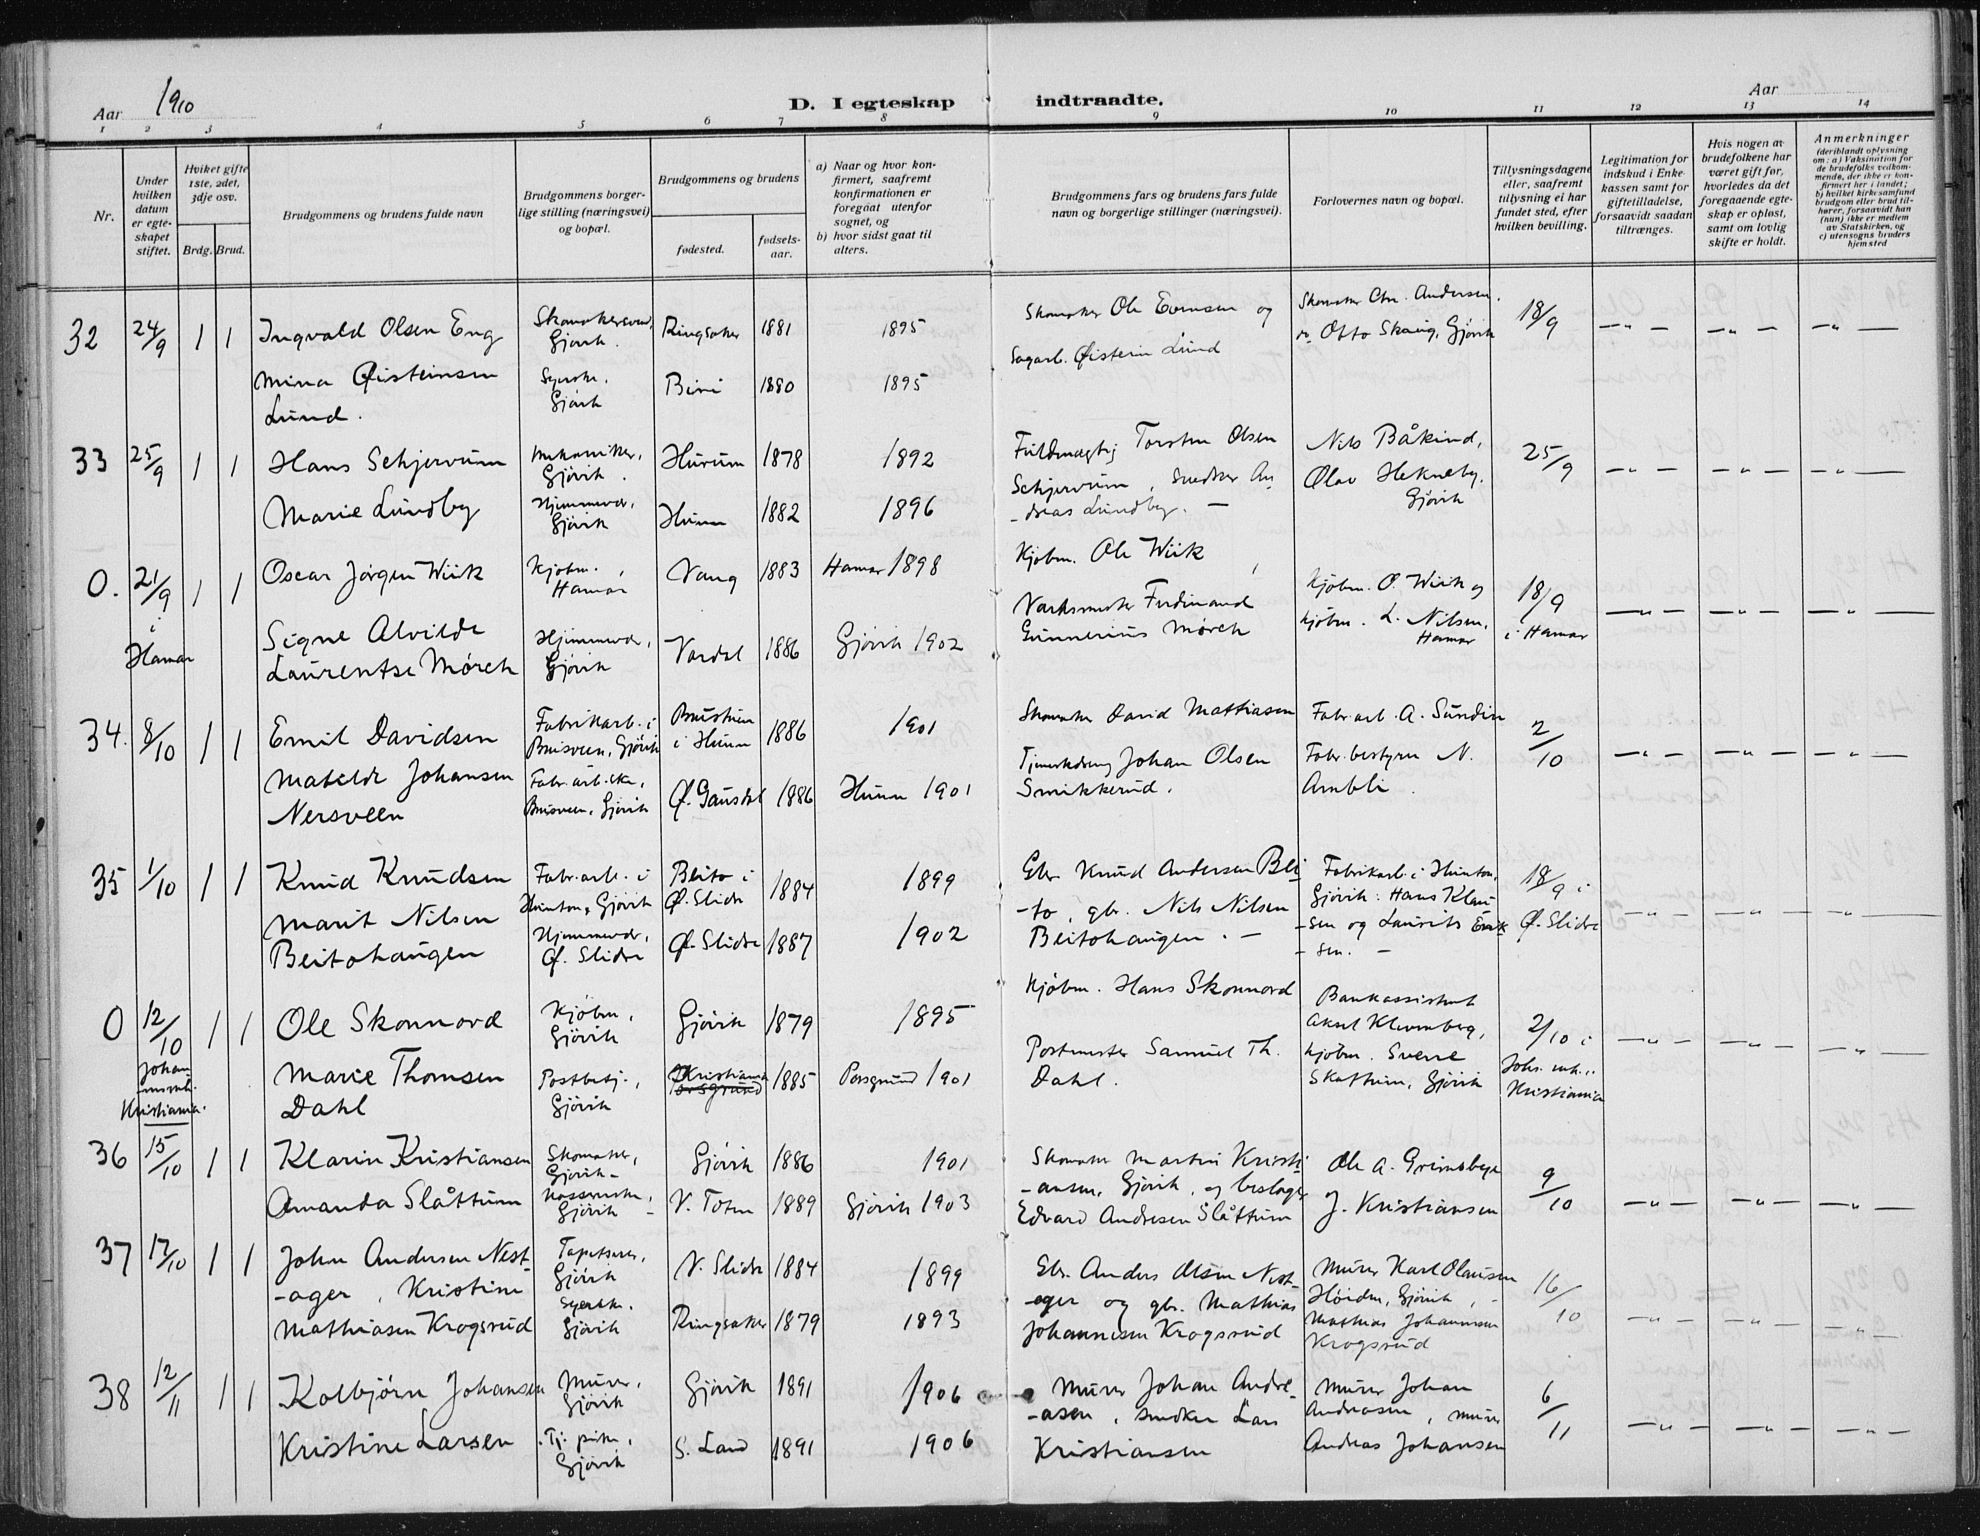 Aar 1910
D. I egteskap indtraadte.
Aar
1 2 3 4 5 6 7 8 9 10 11 12 13 14
Nr.
Under hvilken datum er egteskapet stiftet.
Hviket gifte 1ste, 2det, 3dje osv.
Brdg. Brud.
Brudgommens og brudens fulde navn
Brudgommens borgerlige stilling (næringsvei) og bopæl.
Brudgommens og brudens
fødested.
fødselsaar.
a) Naar og hvor konfirmert, saafremt konfirmationen er foregaat utenfor sognet, og
b) hvor sidst gaat til alters.
Brudgommens fars og brudens fars fulde navn og borgerlige stillinger (næringsvei).
Forlovernes navn og bopæl.
Tillysningsdagene eller, saafremt tillysning ei har fundet sted, efter hvilken bevilling.
Legitimation for indskud i Enkekassen samt for giftetilladelse, forsaavidt saadan tiltrænges.
Hvis nogen av brudefolkene har været gift før, hvorledes da det foregaaende egteskap er opløst, samt om lovlig skifte er holdt.
Anmerkninger
(deriblandt oplysning om: a) Vaksination for de brudefolks vedkommende, der ikke er konfirmert her i landet; b) hvilket kirkesamfund brudgom eller brud tilhører, forsaavidt han (hun) ikke er medlem av Statskirken, og c) utensogns bruders hjemsted
32 24/9 1 1 Ingvald Olsen Eng Gjøvik. Ringsaker 1881 1895 Skomaker Ole Evensen og Skomaker Chr. Andersen. 18/9 —„— —„— —„—
Sagarb. Øistein Lund Otto Skaug, Gjøvik
Mina Øisteinsen Syerske. Gjøvik Biri 1880 1895
Lund.
33 25/9 1 1 Hans Schjervum Mekaniker, Gjøvik. Hurum 1878 1892 Fuldmægtig Torsten Olsen Nils Båkind, 25/9 —„— —„— —„—
Schjervum, Snedker An- Olav Hekneby.
Marie Lundby Hjemmevær. Gjøvik Hunn 1882 1896 -dreas Lundby. — Gjøvik
0. 21/9 1 1 Oscar Jørgen Wiik Kjøbm., Hamar Vang 1883 Hamar 1898 Kjøbm. Ole Wiik, Kjøbm. O. Wiik og 18/9 —„— —„— —„—
i Hamar Signe Alvilde Hjemmevær, Vardal 1886 Gjøvik 1902 Ferdinand kjøbm. L. Nilsen, i Hamar
Laurentse Mørch Gjøvik Gunnerius Mørch Hamar
34. 8/10 1 1 Emil Davidsen Fabrikarb. i Gjøvik i Hunn 1886 1901 Skomaker David Mathiasen Fabr.arb. A. Sundin 2/10 —„— —„— —„—
Matelde Johansen Gjøvik Ø. Gausdal 1886 Hunn 1901 Johan Olsen Fabr.bestyrer N.
Nersveen Smikkerud. Ambli.
35 1/10 1 1 Knud Knudsen Fabr.arb. i Beito i Ø. Slidre 1884 1899 Gbr. Knud Andersen Bei- Fabrikarb. i Hunton, 18/9 i —„— —„— —„—
Hunton, Gjøvik -to, gbr. Nils Nilsen Gjøvik: Hans Klau- Ø. Slidre
Marit Nilsen Hjemmevær, Ø. Slidre 1887 1902 Beitohaugen. — -sen og Laurits Erik-
Beitohaugen Ø. Slidre -sen. —
0 12/10 1 1 Ole Skonnord Kjøbm., Gjøvik Gjøvik 1879 1895 Kjøbm. Hans Skonnord Bankassistent 2/10 i —„— —„— —„—
Johan Aksel Klevenberg,
Kristiania. Marie Thomsen Postbetj., Gjøvik Kristiania Porsgrund 1885 Porsgrund 1901 Postmester Samuel Th. kjøbm. Sverre Joh. mk..
Dahl Dahl. Skattum, Gjøvik Kristiania
36 15/10 1 1 Klarin Kristiansen Skomaker, Gjøvik- Gjøvik 1886 1901 Skomaker Martin Kristi- Ole A. Grimsbye 9/10 —„— —„— —„—
-ansen, Gjøvik, og beslager
Amanda Slåttum Gjøvik V. Toten 1889 Gjøvik 1903 Edvard Andresen Slåttum J. Kristiansen
37 17/10 1 1 John Andersen Nest- Tapetserer, Gjøvik V. Slidre 1884 1899 Gbr. Anders Olsen Nest- Murer Karl Olausen 16/10 —„— —„— —„—
-ager, Kristine Syerske. -eger og gbr. Mathias Høiden, Gjøvik,
Mathiasen Krogsrud Gjøvik Ringsaker 1879 1893 Johannesen Krogsrud Mathias Johannesen
Krogsrud
38 12/11 1 1 Kolbjørn Johansen Murer, Gjøvik Gjøvik 1891 1906 Murer Johan Andre- Murer Johan 6/11 —„— —„— —„—
-asen, snedker Lars Andreasen, murer
Kristine Larsen Tj. pike, Gjøvik S. Land 1891 1906 Kristiansen Andreas Johansen